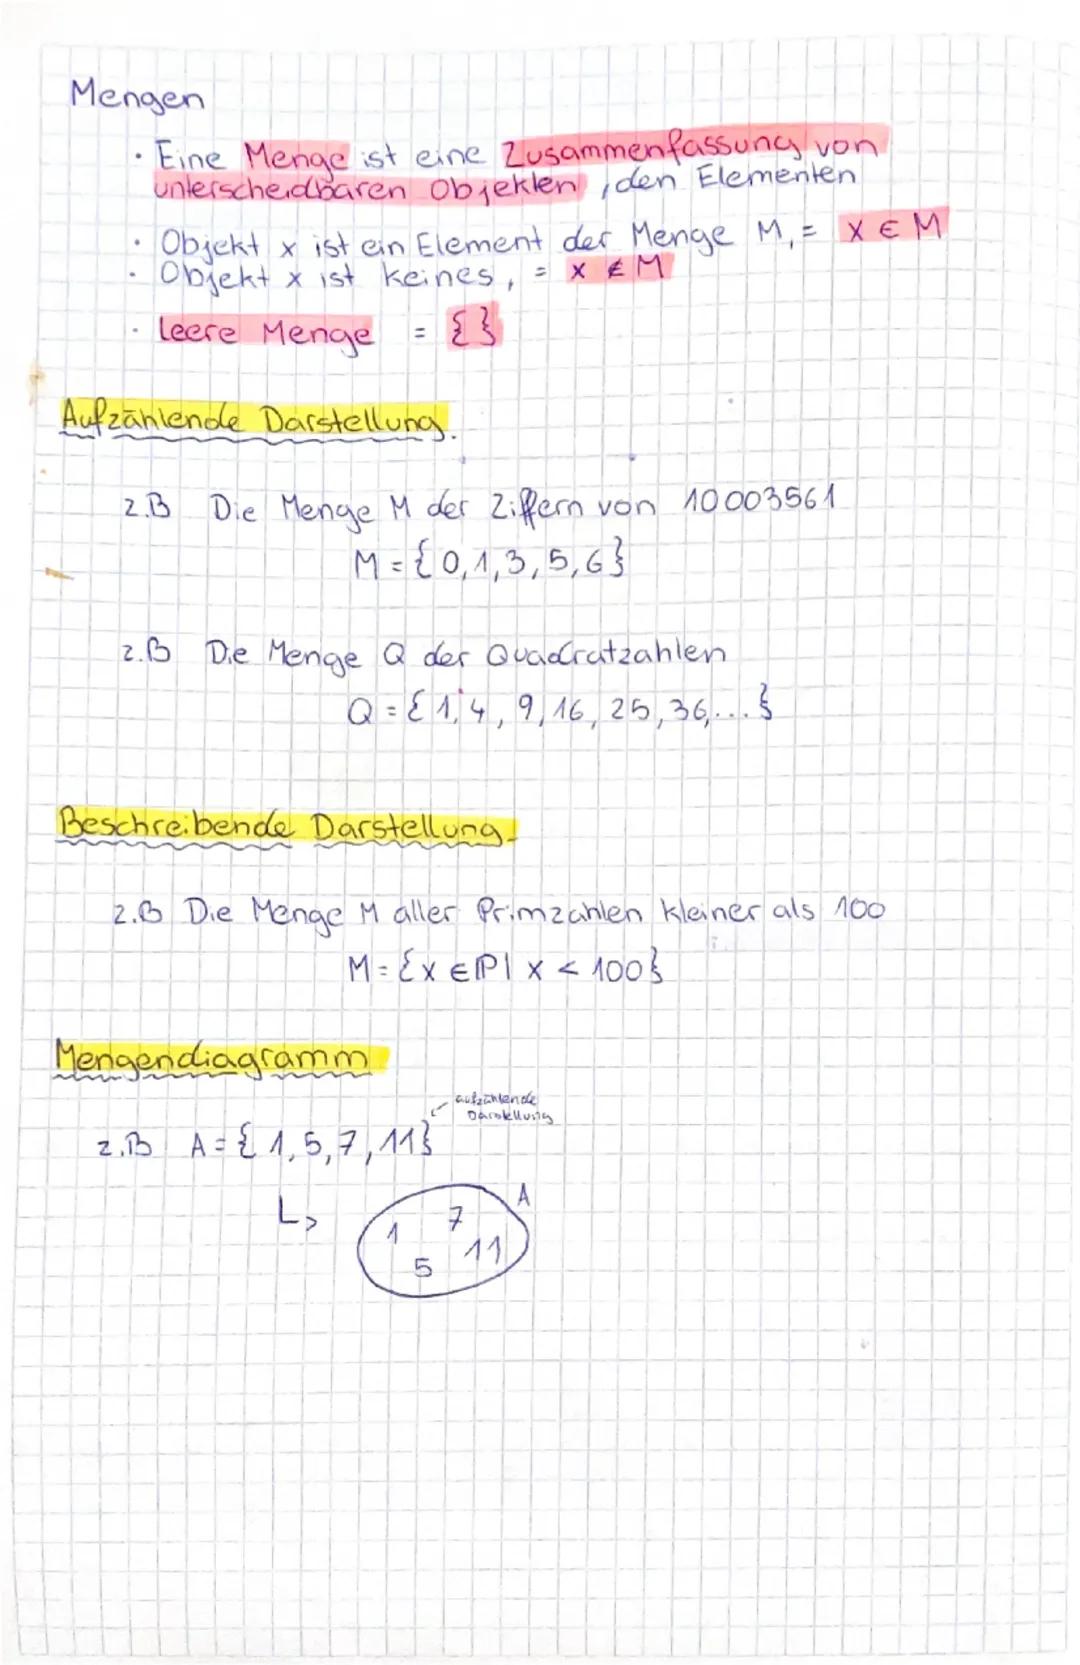 Mengen
· Eine Menge ist eine Zusammenfassung von
unterscheidbaren Objekten, den Elementen
· Objekt x ist ein Element der Menge M, = x ∈ M
· Objekt x ist keines, = x ∉ M
· leere Menge = { }
Aufzählende Darstellung.
z.B Die Menge M der Ziffern von 10003561
M = {0,1,3,5,6}
z.B Die Menge Q der Quadratzahlen
Q = {1,4,9,16,25,36,...}
Beschreibende Darstellung.
z.B Die Menge M aller Primzahlen kleiner als 100
M = {x ∈ ℙ | x < 100}
Mengendiagramm
aufzählende
Darstellung
z.B A = {1,5,7,11}
A
1 7
5 11